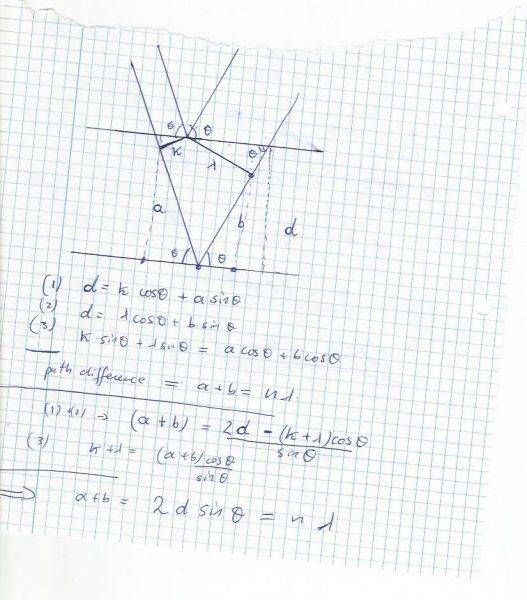 θ θ
k λ θ
a b d
θ θ
(1) d = k cosθ + a sinθ
(2) d = λ cosθ + b sinθ
(3) k sinθ + λ sinθ = a cosθ + b cosθ
path difference = a+b = nλ.
(1)+(2) ⇒ (a+b) = 2d - (k+λ)cosθ / sinθ
(3) k+λ = (a+b) cosθ / sinθ
⇒ a+b = 2d sinθ = nλ